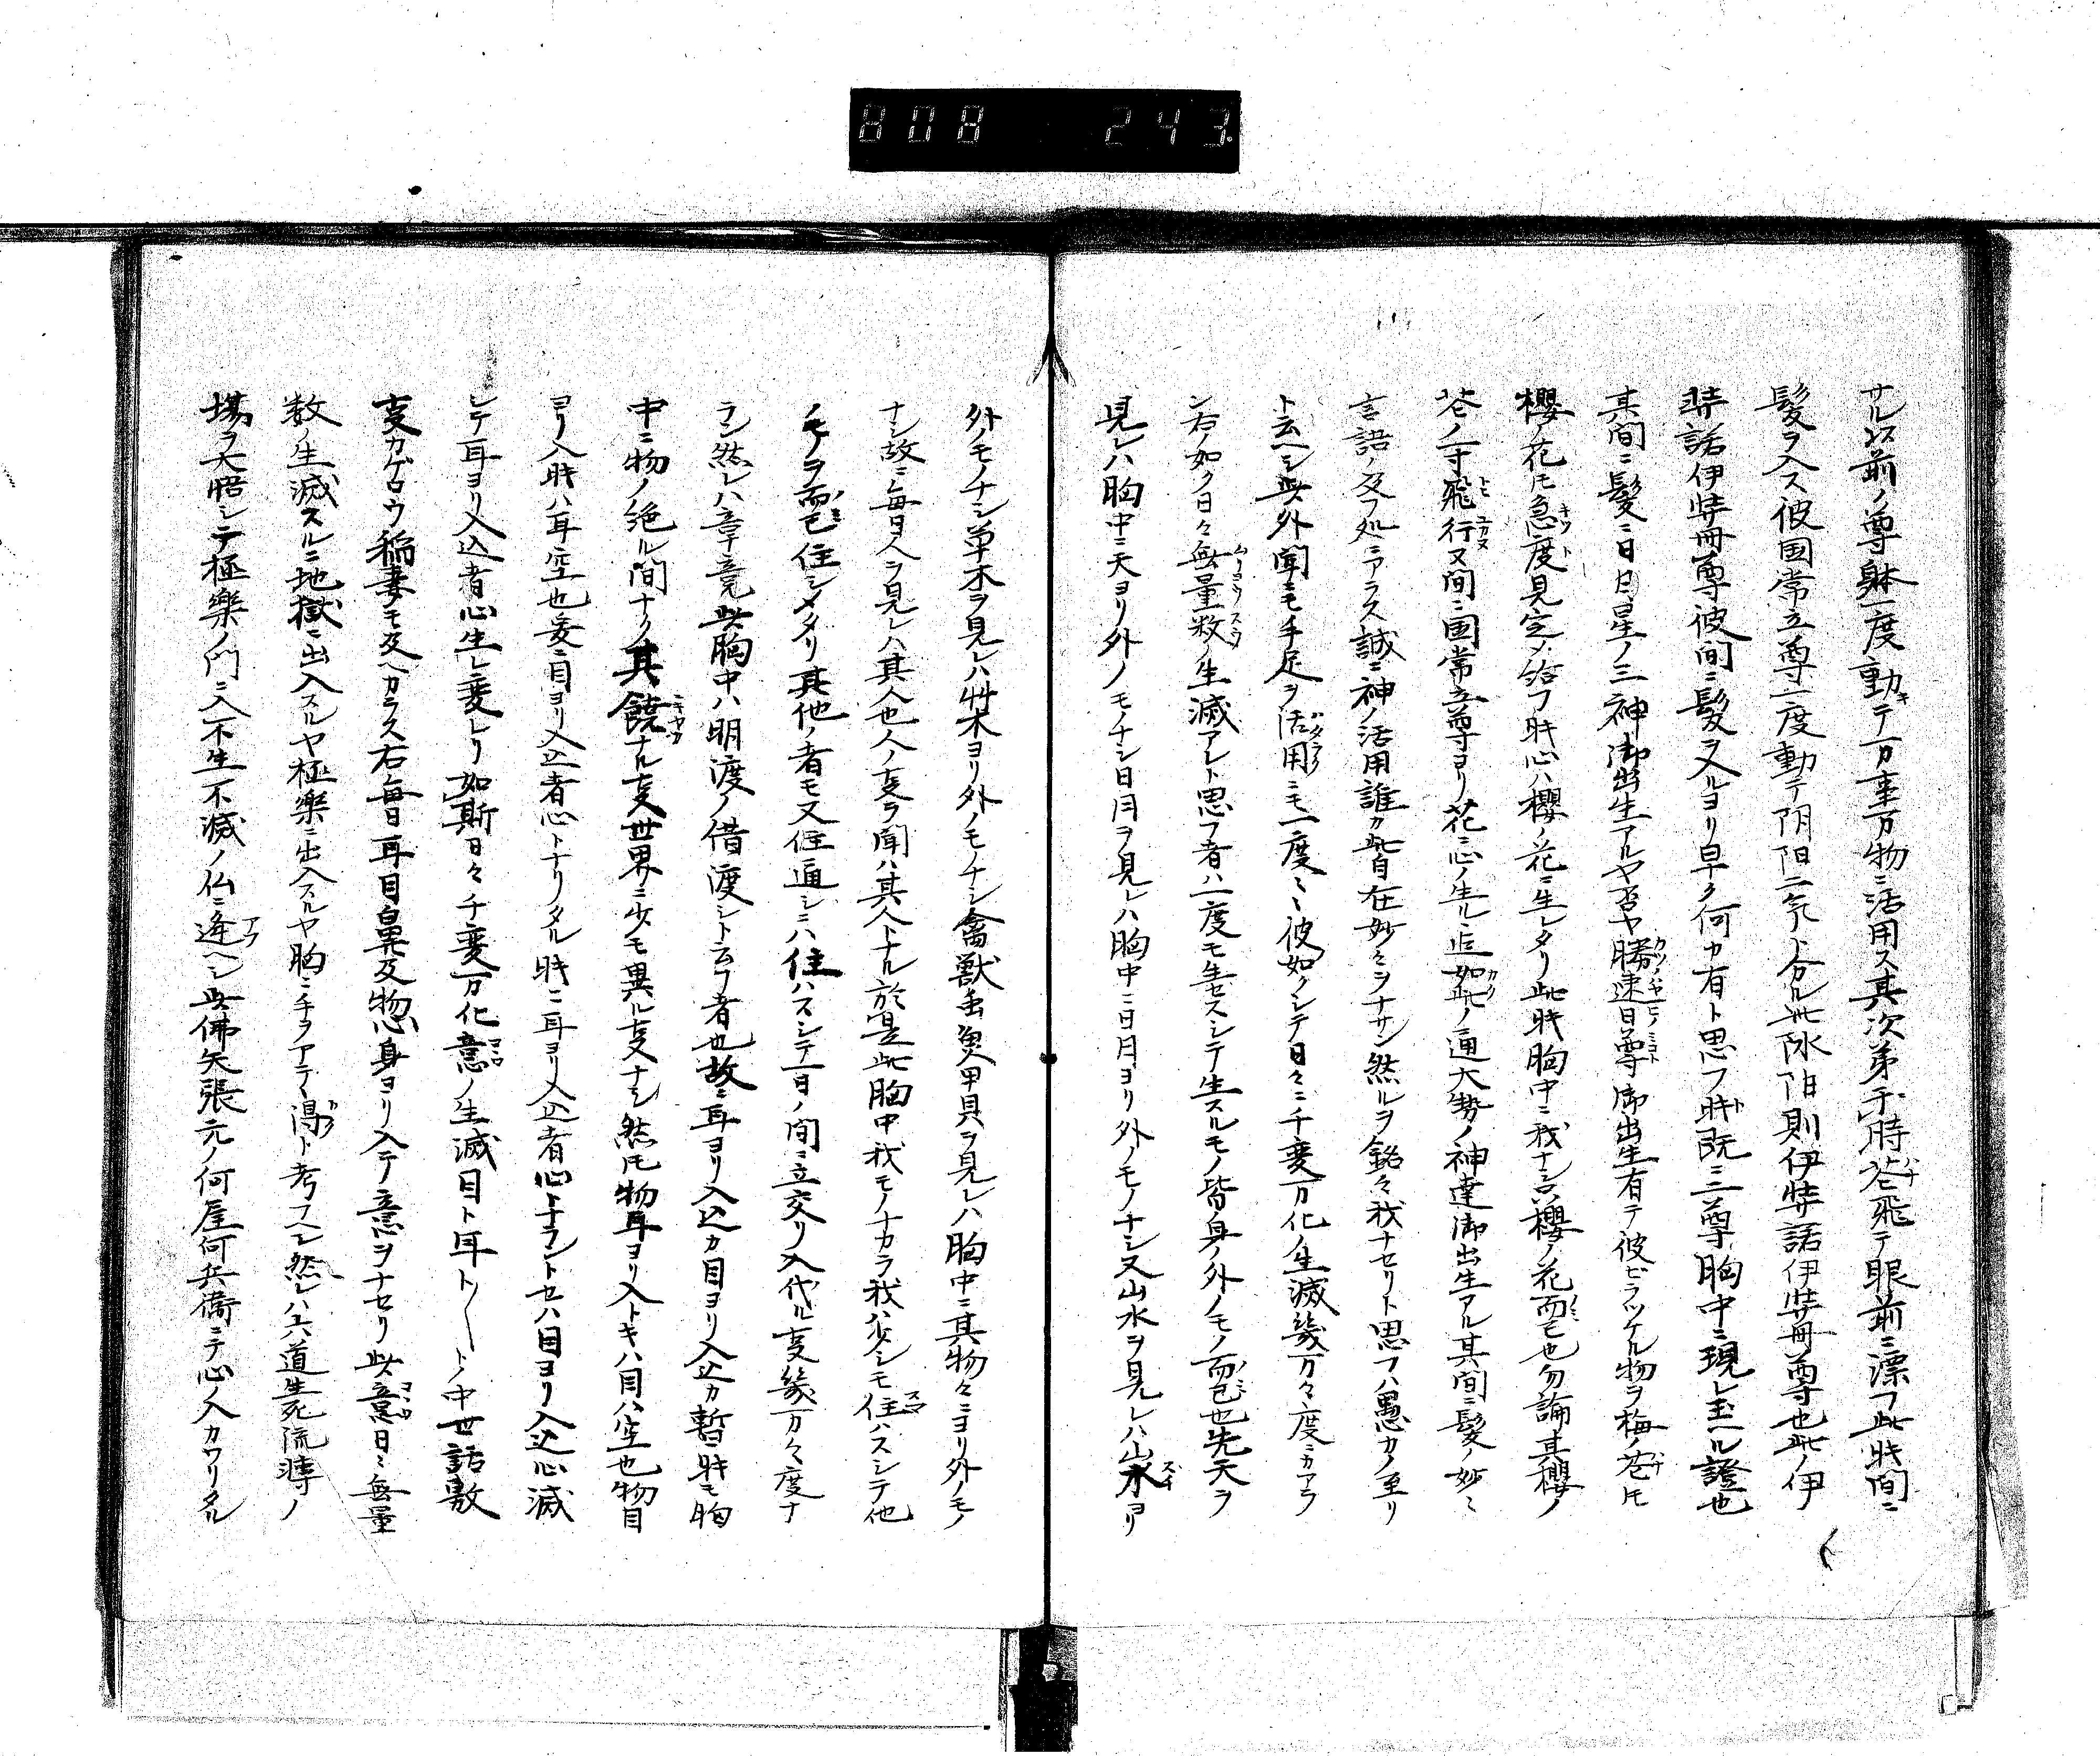 808 243.
サル以前ノ尊躰一度動テ万事万物ニ活用ス其次第于時花飛テ眼前ニ漂フ此時間ニ
髪ヲ入ス彼国常立尊一度動テ阴阳二気ト分ル此陰阳則伊弉諾伊弉冊尊也此ノ伊
弉諾伊弉冊尊彼間ニ髪ヲ入ルヨリ早ク何カ有ト思フ時既ニ三尊胸中ニ現レ玉ヘル證也
其間ニ髪ニ日月星ノ三神御出生アルヤ否ヤ勝速日尊御出生有テ彼ビラツケル物ヲ梅ノ花トモ
櫻ノ花トモ急度見定メ給フ時心ハ櫻ノ花ニ生レタリ此時胸中ニ我ナシ只櫻ノ花而已也勿論其櫻ノ
花ノ一寸飛行又間ニ国常立尊ヨリ花ニ心ノ生ル迄如此ノ通大勢ノ神達御出生アル其間ニ髪ノ妙ミ
言語ノ及フ処ニアラス誠ニ神ノ活用誰カ此自在妙々ヲナサン然ルヲ銘々我ナセリト思フハ愚カノ至リ
ト云ヘシ此外聞ニモ手足ヲ活用ニモ一度ミミ彼如クシテ日々ニ千変万化ノ生滅幾万々度ニカアラ
ン右ノ如ク日々無量数ノ生滅アレト思フ者ハ一度モ生セスシテ生スルモノ皆身ノ外ノモノ而已也先天ヲ
見レハ胸中ニ天ヨリ外ノモノナシ日月ヲ見レハ胸中ニ日月ヨリ外ノモノナシ又山水ヲ見レハ山水ヨリ
外ノモノナシ草木ヲ見レハ艸木ヨリ外ノモノナシ禽獣虫魚甲貝ヲ見レハ胸中ニ其物々ニヨリ外ノモノ
ナシ故ニ毎日人ヲ見レハ其人也人ノ叓ヲ聞ハ其人トナル於是此胸中我モノナカラ我ハ少シモ住ハスシテ他
ノモノヲ而已住シメタリ其他ノ者モ又住通シニハ住ハスシテ一日ノ間ニ立交リ入代ル叓幾万々度ナ
ラン然レハ畢竟此胸中ハ明渡ノ借渡シト云フ者也故ニ耳ヨリ入込カ目ヨリ入込カ暫ニ時モ胸
中ニ物ノ絶ル間ナク其饒ナル叓世界ニ少モ異ル叓ナシ然トモ物耳ヨリ入トキハ目ハ空也物目
ヨリ入時ハ耳空也爰ニ目ヨリ入込者心トナリタル時ニ耳ヨリ入込者心トナラントセハ目ヨリ入込心滅
シテ耳ヨリ入込者心生レ変レリ如斯日々千変万化意ノ生滅目ト耳ト〱トノ中世話敷
叓カゲロウ稲妻モ及ヘカラス右毎日耳目鼻及物心身ヨリ入テ意ヲナセリ此意日々無量
数ノ生滅スルニ地獄ニ出入スルヤ極楽ニ出入スルヤ胸ニ手ヲアテ得ト考フヘシ然レハ六道生死流轉ノ
場ヲ大悟シテ極楽ノ門ニ入不生不滅ノ仏ニ逢ヘシ此佛矢張元ノ何屋何兵衛ニテ心ノ入カワリタル